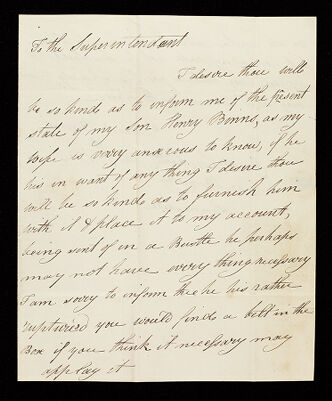 To the Superintendant
I desire thou wilt
be so kind as to inform me of the present
state of my Son Henry Binns, as my
wife is verry anxious to know, if he
his in want of any thing I desire thou
will be so kind as to furnish him
with it & place it to my account,
being sent of in a Bustle he perhaps
may not have every thing necessary
I am sorry to inform thee he his rather
rupturied you would find a belt in the
Box if you think it necessary may
applay it